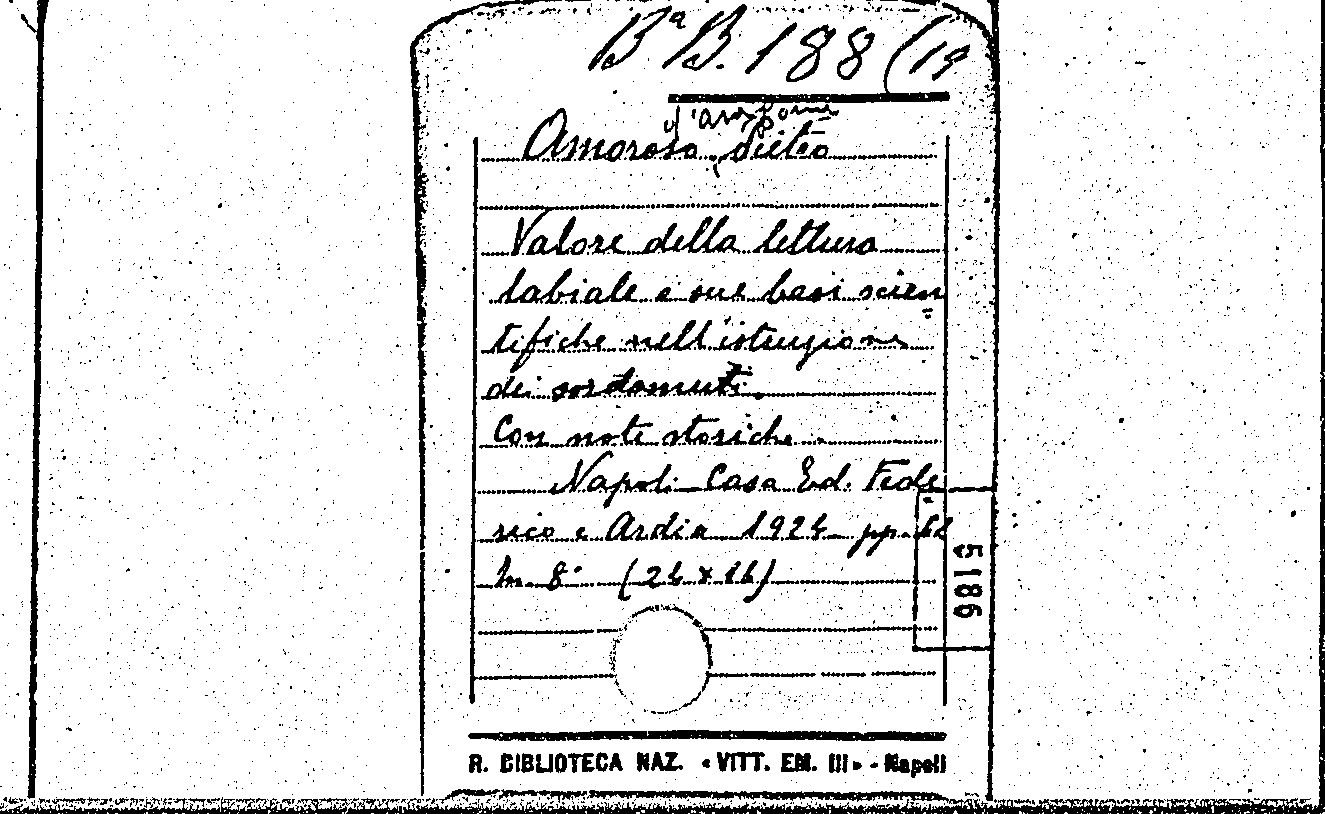 Bª B. 188 (19
d'Aragona
Amoroso, Pietro
Valore della lettura
labiale e sue basi scien
tifiche nell'istruzione
dei sordomuti.
Con note storiche.
Napoli Casa Ed. Fede
rico e Ardia 1924 pp. 62
In 8° (24 x 16)
5186
R. BIBLIOTECA NAZ. «VITT. EM. III» - Napoli